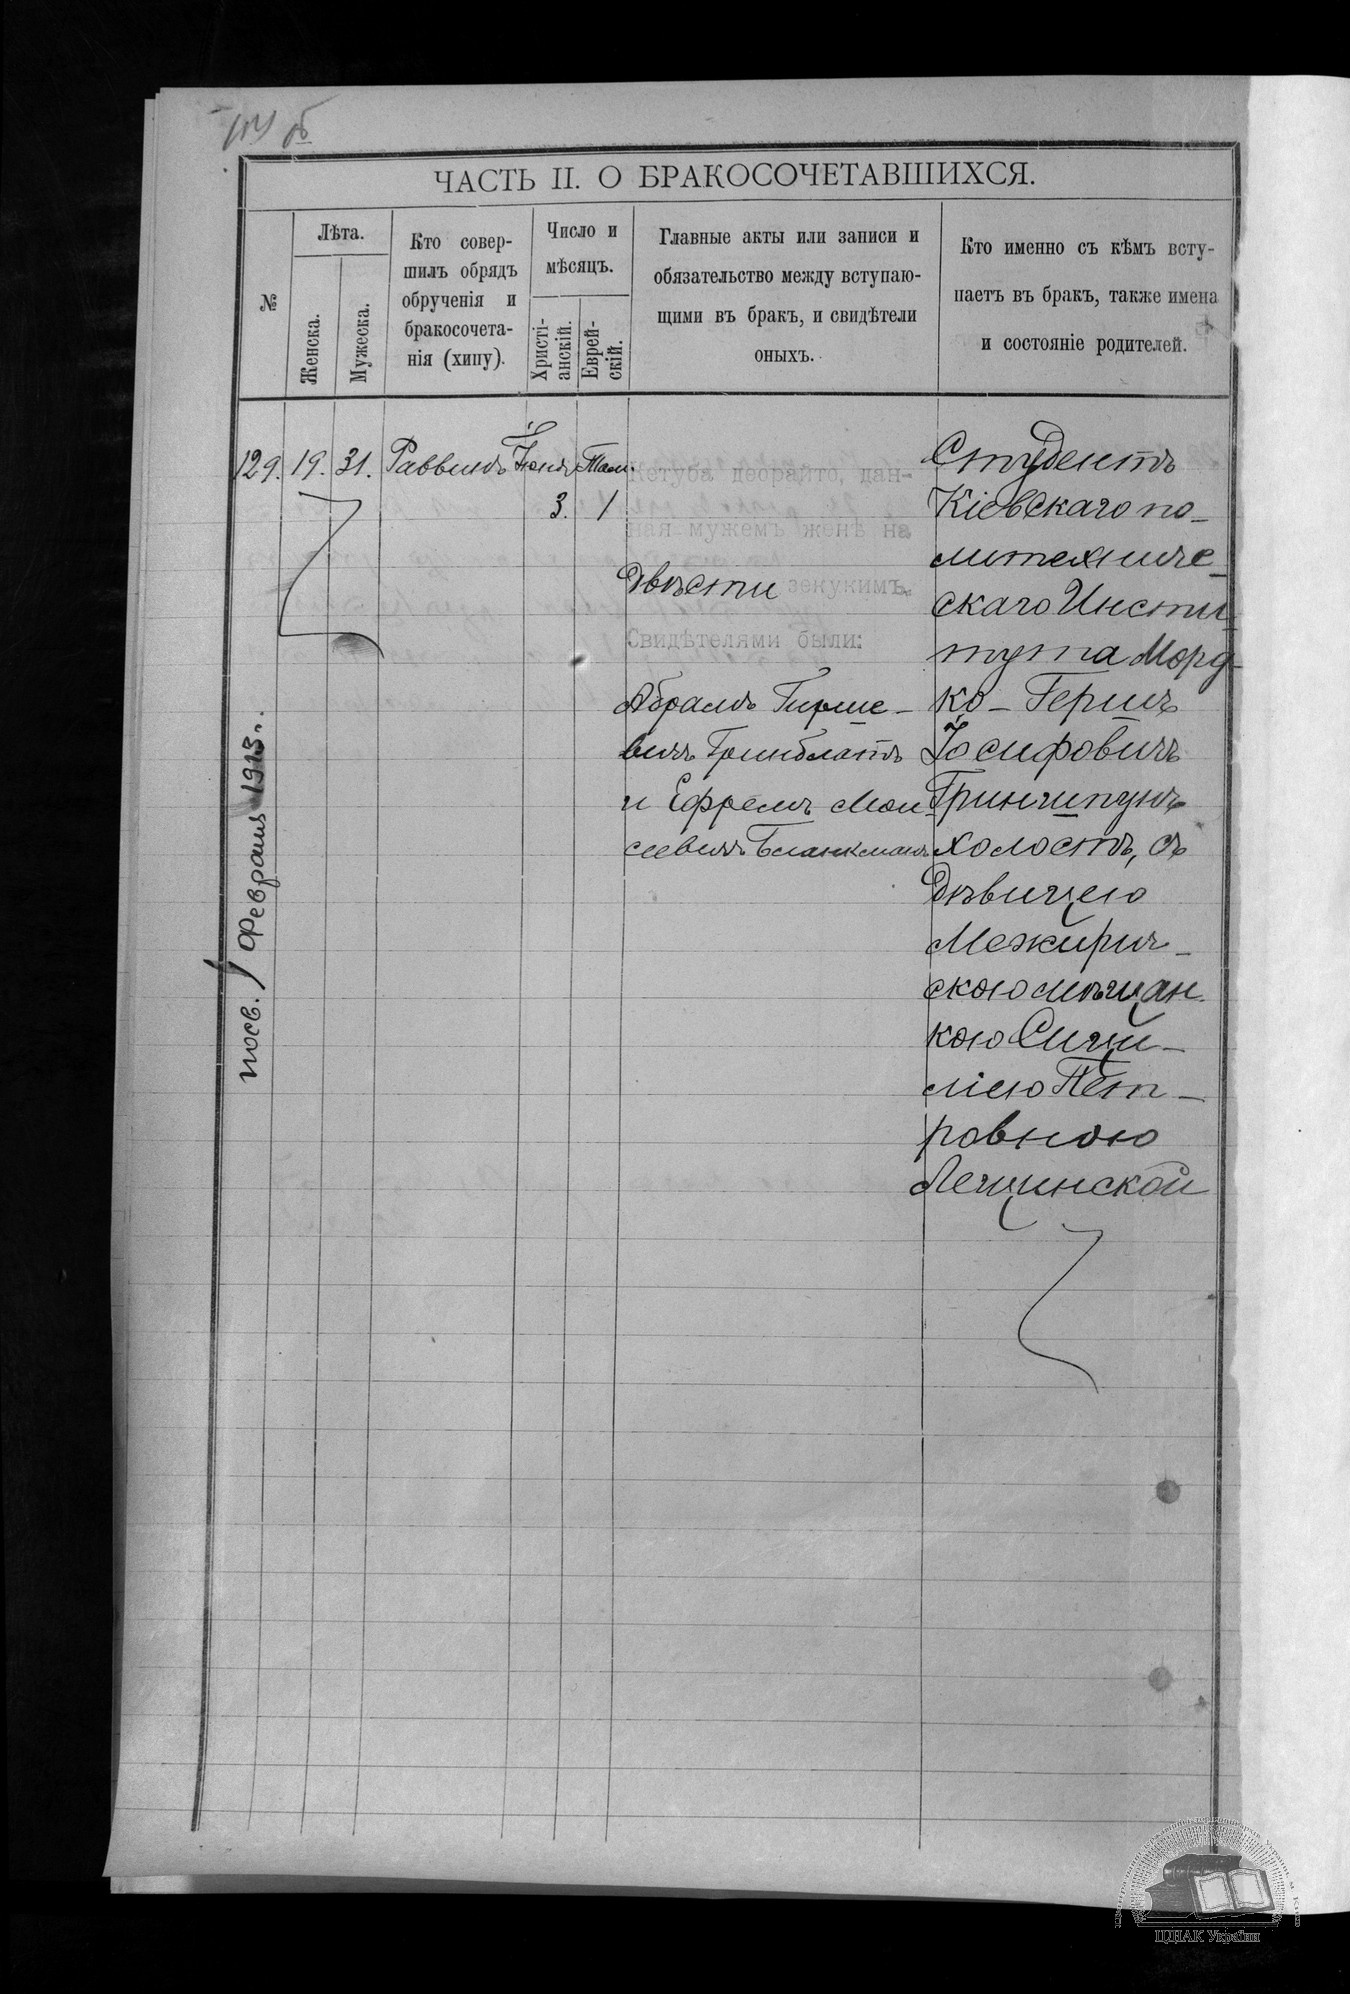 ЧАСТЬ II. О БРАКОСОЧЕТАВШИХСЯ.
№
Лѣта.
Женска.
Мужеска.
Кто совер-
шилъ обрядъ
обрученія и
бракосочета-
нія (хипу).
Число и
мѣсяцъ.
Христі-
анскій.
Еврей-
скій.
Главные акты или записи и
обязательство между вступаю-
щими въ бракъ, и свидѣтели
оныхъ.
Кто именно съ кѣмъ всту-
паетъ въ бракъ, также имена
и состояніе родителей.
129. 19. 31. Раввинъ Іюня Там.
3. 1
Кетуба деорайто, дан-
ная мужемъ женѣ на
Двѣсти зекукимъ.
Свидѣтелями были:
Абрамъ Гирше-
вичъ Гринблатъ
и Ефремъ Мои
сеевичъ Бланкманъ
Студентъ
Кіевскаго по-
литехниче-
скаго Инсти-
тута Морд-
ко-Гершъ
Іосифовичъ
Гринчипунъ
холостъ, съ
Дѣвицею
Межирич-
скою мѣщан.
кою Сици-
ліею Пет-
ровною
Лещинской
посв. 1 Февраля 1913 г.
ЦДІАК України